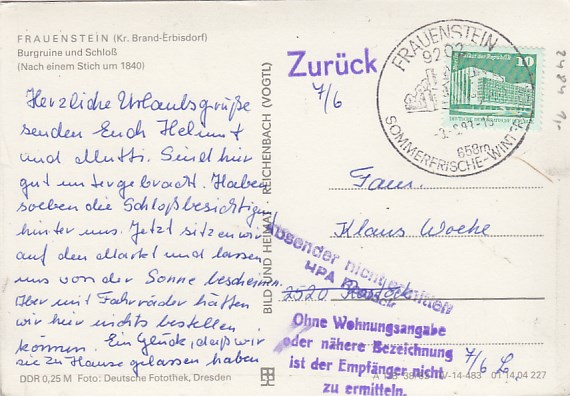 FRAUENSTEIN (Kr. Brand-Erbisdorf)
Burgruine und Schloß
(Nach einem Stich um 1840)
Herzliche Urlaubsgrüße
senden Euch Helmut
und Mutti. Sind hier
gut untergebracht. Haben
soeben die Schloßbesichtigung
hinter uns. Jetzt sitzen wir
auf den Markt und lassen
uns von der Sonne bescheinen.
Aber mit Fahrräder hätten
wir hier nichts bestellen
können. Ein Glück, daß wir
sie zu Hause gelassen haben
DDR 0,25 M Foto: Deutsche Fotothek, Dresden
BILD UND HEIMAT · REICHENBACH (VOGTL)
Zurück
7/6
FRAUENSTEIN
9202
650m
SOMMERFRISCHE-WINT
10
Fam.
Klaus Woche
2520 Rostock
Absender nicht ermitteln
HPA Rostock
Ohne Wohnungsangabe
oder nähere Bezeichnung
ist der Empfänger nicht
zu ermitteln.
7/6 L.
IV-14-483 01 14 04 227